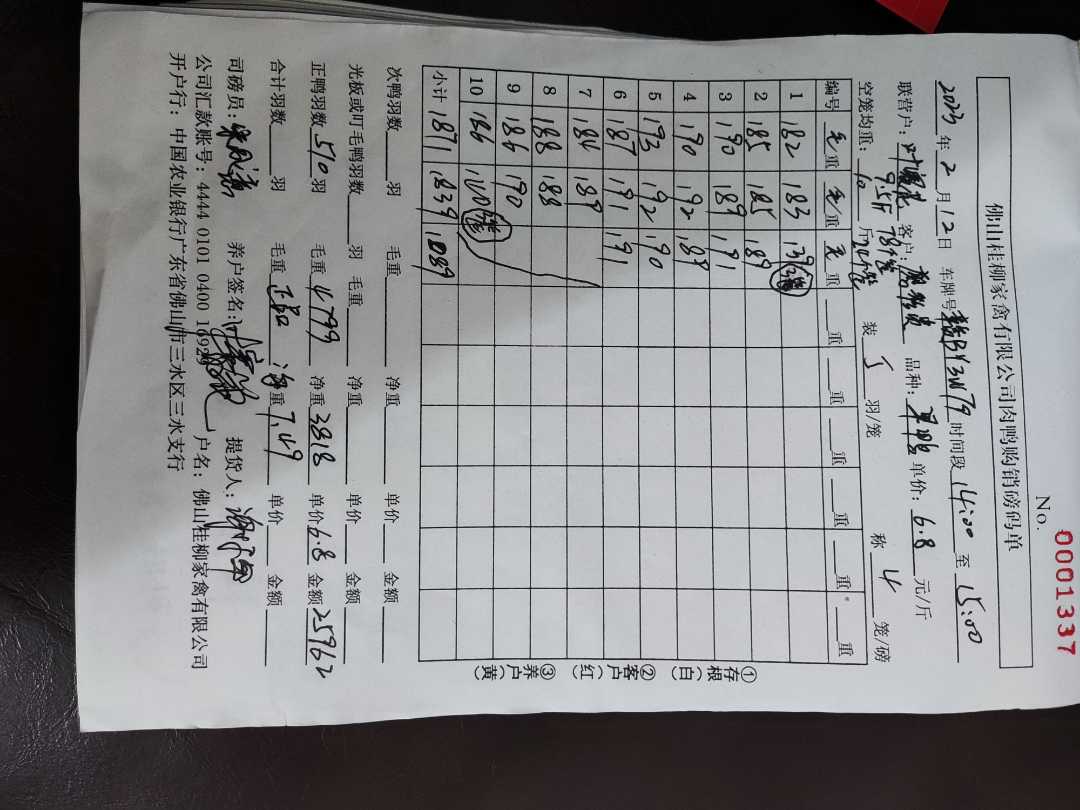 No. 0001337
佛山桂柳家禽有限公司肉鸭购销磅码单
2023年2月12日 车牌号 时间段14:00至15:00
联营户: 客户: 品种: 单价:6.8元/斤
空笼均重: 斤 装 羽/笼 称4笼/磅
编号 毛重 毛重 毛重 重 重 重 重 重 重
1 182 183 139
2 185 185 189
3 190 189 191
4 190 192 188
5 193 192 190
6 187 191 191
7 186 189
8 188 188
9 186 190
10
小计 1871 1839 1089
次鸭羽数 羽 毛重 净重 单价 金额
光板或叮毛鸭羽数 羽 毛重 净重 单价 金额
正鸭羽数510羽 毛重4799 净重3818 单价6.8 金额25962
合计羽数 羽 毛重 正品 净重7.49 单价 金额
司磅员: 养户签名: 提货人:
公司汇款账号: 4444 0101 0400 户名: 佛山桂柳家禽有限公司
开户行: 中国农业银行广东省佛山市三水区三水支行
①存根(白)
②客户(红)
③养户(黄)